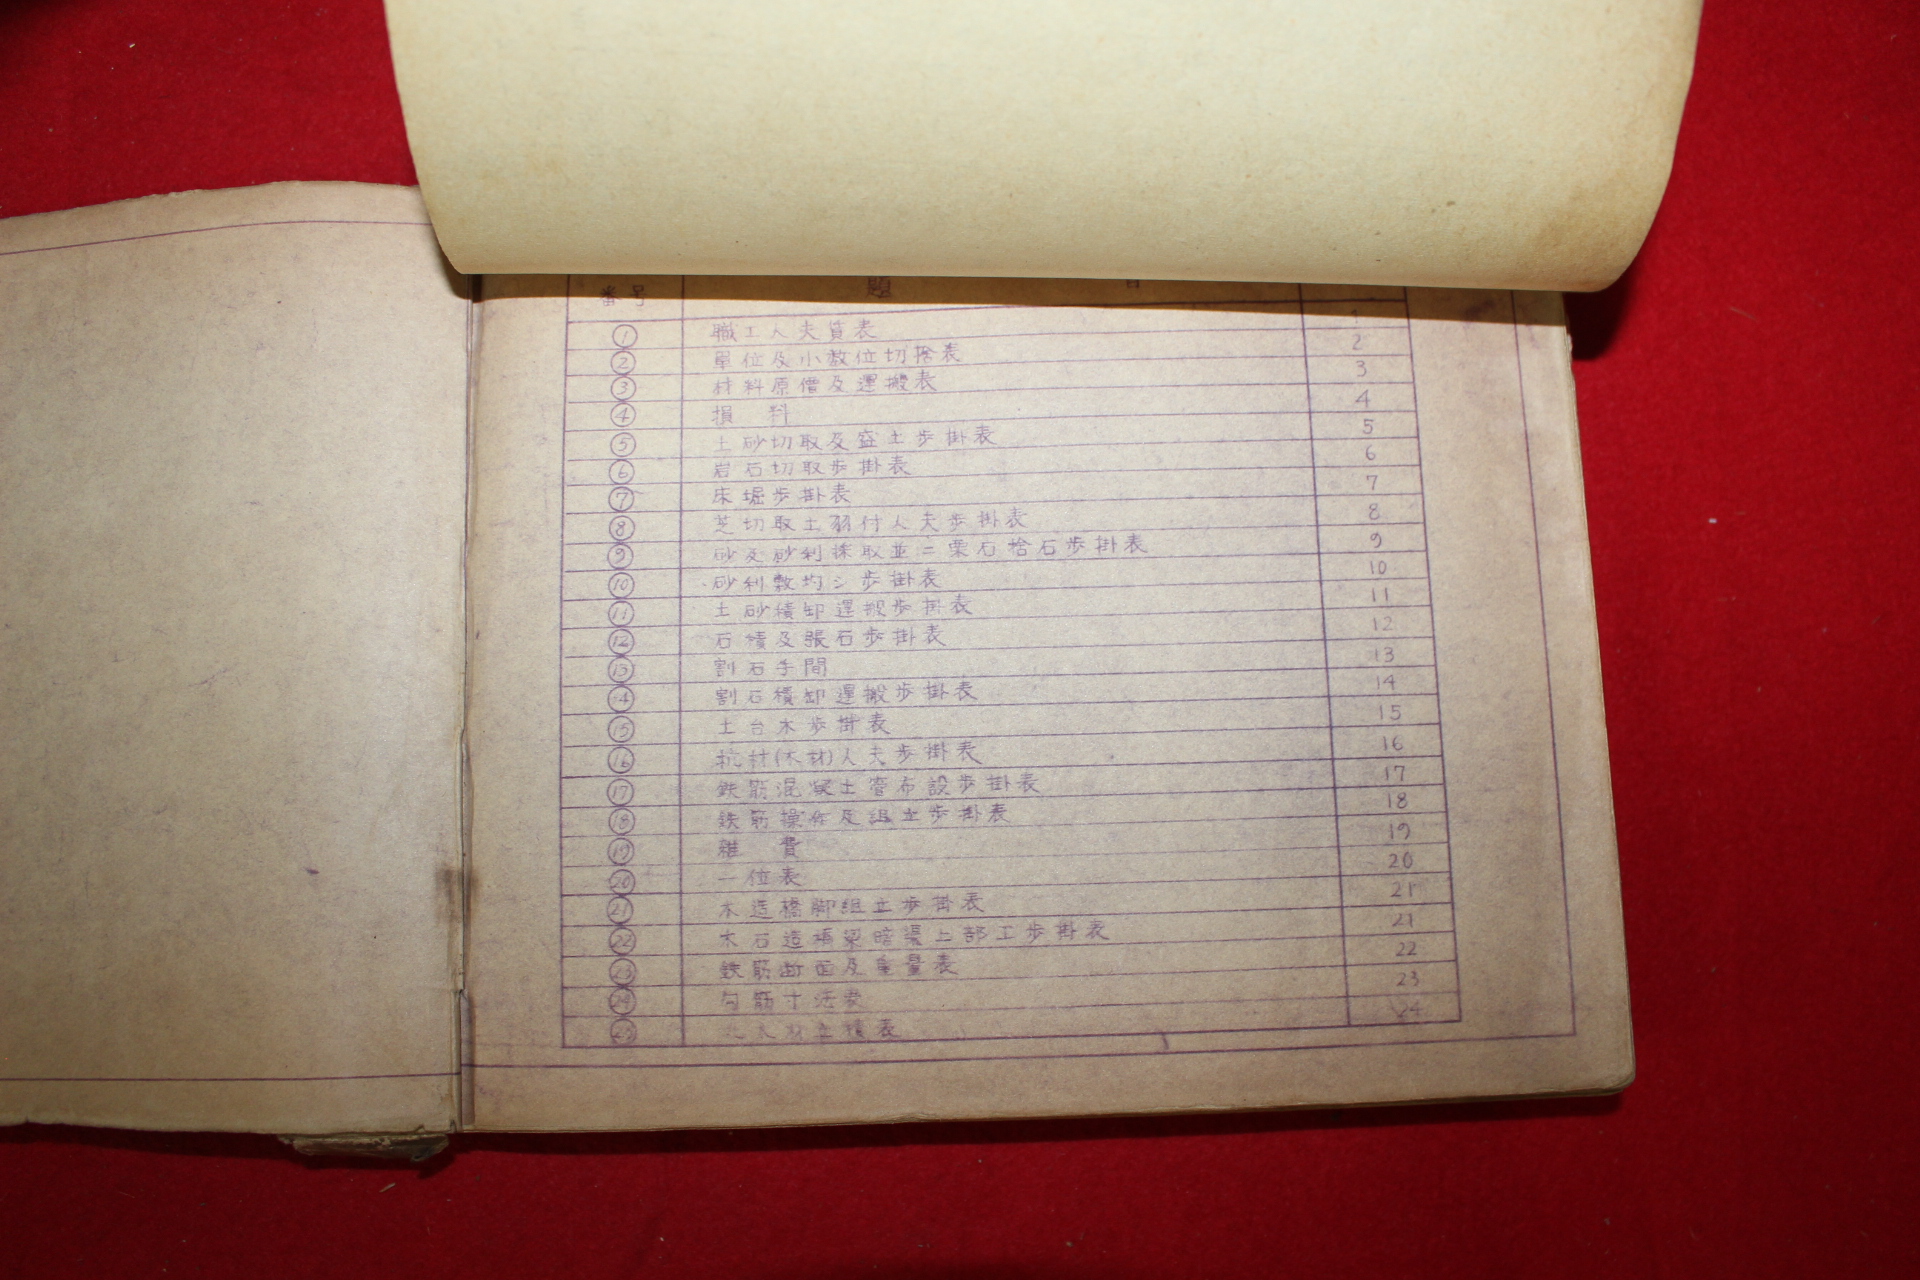 番号 題 目
① 職工人夫賃表 1
② 單位及小数位切捨表 2
③ 材料原價及運搬表 3
④ 損 料 4
⑤ 土砂切取及盛土歩掛表 5
⑥ 岩石切取歩掛表 6
⑦ 床堀歩掛表 7
⑧ 芝切取土羽付人夫歩掛表 8
⑨ 砂及砂利採取並ニ栗石捨石歩掛表 9
⑩ 砂利敷均シ歩掛表 10
⑪ 土砂積卸運搬歩掛表 11
⑫ 石積及張石歩掛表 12
⑬ 割石手間 13
⑭ 割石積卸運搬歩掛表 14
⑮ 土台木歩掛表 15
⑯ 杭材(木材)人夫歩掛表 16
⑰ 鉄筋混凝土管布設歩掛表 17
⑱ 鉄筋操作及組立歩掛表 18
⑲ 雑 費 19
⑳ 一位表 20
㉑ 木造橋脚組立歩掛表 21
㉒ 木石造橋梁暗渠上部工歩掛表 21
㉓ 鉄筋断面及重量表 22
㉔ 筋寸法表 23
㉕ 材立積表 24